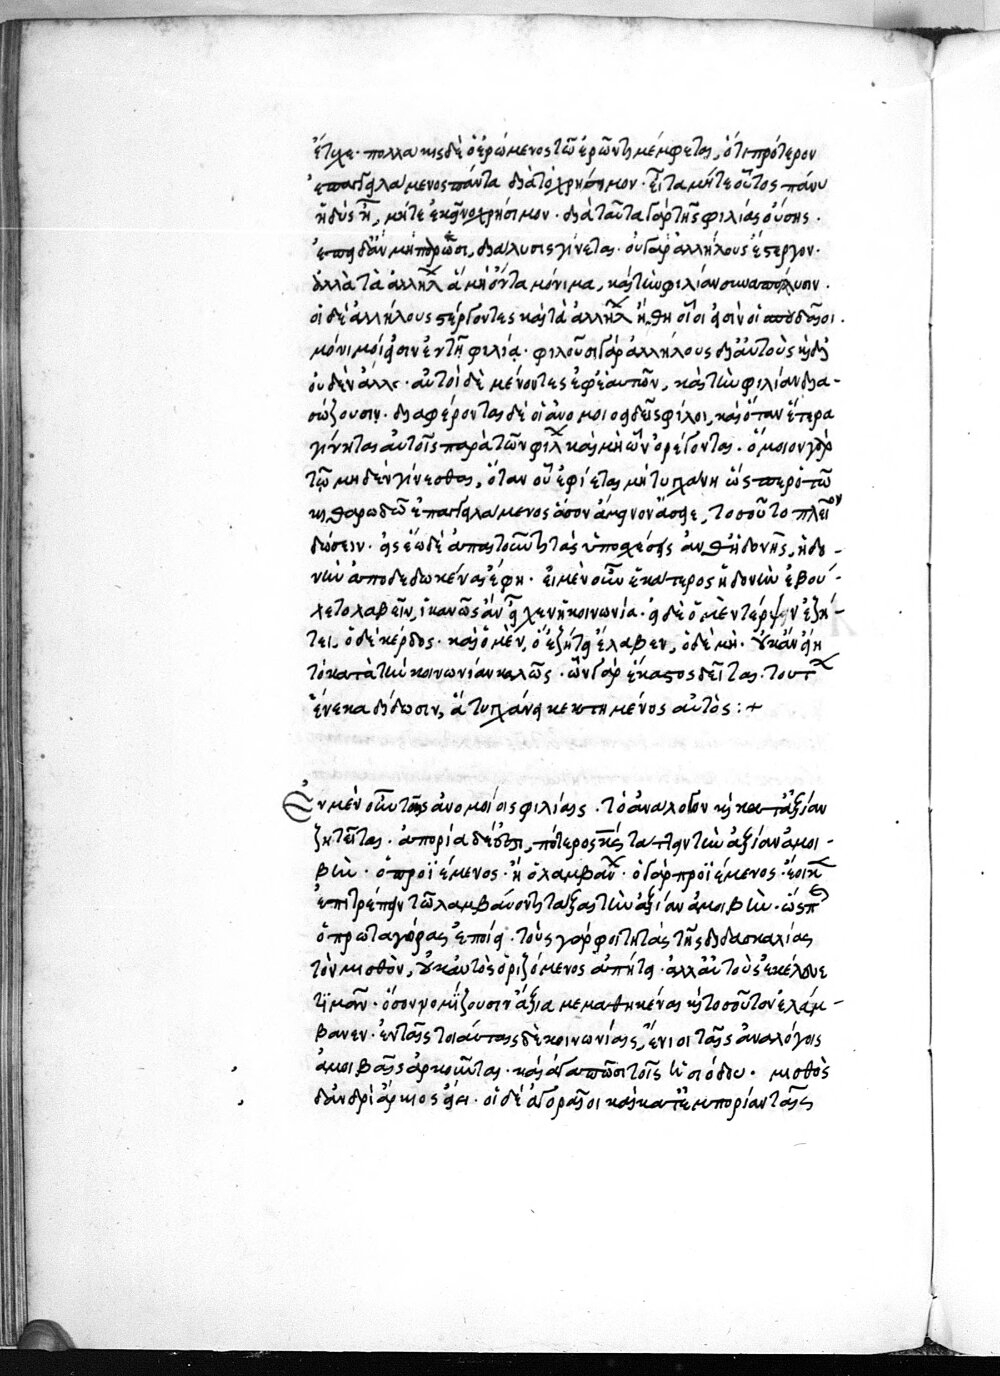 ἔτυχε· πολλάκις δὲ ὁ ἐρώμενος τῶ ἐρῶντι μέμφεται, ὅτι πρότερον
ἐπαγγελάμενος πάντα διὰ τὸ χρήσιμον· εἶτα μήτε οὗτος πάνυ
ἡδὺς ἦ, μήτε ἐκεῖνο χρήσιμον· διὰ ταῦτα γὰρ τῆς φιλίας οὔσης·
ἐπειδὰν μὴ πορῶσι, διάλυσις γίνεται· οὐ γὰρ ἀλλήλους ἔστεργον·
ἀλλὰ τὰ ἀλλήλ ἃ μὴ ὄντα μόνιμα, καὶ τὴν φιλίαν συναπολύουσιν·
οἱ δὲ ἀλλήλους στέργοντες καὶ τὰ ἀλλήλ ἤθη οἷοι εἰσὶν οἱ σπουδαῖοι·
μόνιμοί εἰσιν ἐν τῆ φιλία· φιλοῦσι γὰρ ἀλλήλους δι αὐτοὺς καὶ δι
οὐδὲν ἄλλο· αὐτοὶ δὲ μένοντες ἐφ ἑαυτῶν, καὶ τὴν φιλίαν δια-
σώζουσιν· διαφέρονται δὲ οἱ ἀνομοιοειδεῖς φίλοι, καὶ ὅταν ἕτερα
γίνηται αὐτοῖς παρὰ τῶν φίλ καὶ μὴ ὧν ὀρέγονται· ὅμοιον γὰρ
τῷ μηδὲν γίνεσθαι, ὅταν οὗ ἐφίεται μὴ τυγχάνη ὥσπερ ὁ τῶ
κιθαρωδῶ ἐπαγγειλάμενος ὅσον ἄμεινον ἄσειε, τοσοῦτο πλεῖον
δώσειν· εἰς ἕω δὲ ἀπαιτοῦντι τὰς ὑποσχέσεις ἀνθ ἡδονῆς, ἡδο-
νὴν ἀποδεδωκέναι ἔφη· εἰ μὲν οὖν ἑκάτερος ἡδονὴν ἐβού-
λετο λαβεῖν, ἱκανῶς ἂν εἶχεν ἡ κοινωνία· εἰ δὲ ὁ μὲν τέρψιν ἐζή-
τει, ὁ δὲ κέρδος· καὶ ὁ μὲν, ὃ ἐζήτει ἔλαβεν, ὁ δὲ μή· οὐκ ἂν εἴη
τὸ κατὰ τὴν κοινωνίαν καλῶς· ὧν γὰρ ἕκαστος δεῖται· τούτ
ἕνεκα δίδωσιν, ἃ τυγχάνει κεκτημένος αὐτός :+
Ἐν μὲν οὖν ταῖς ἀνομοίοις φιλίαις· τὸ ἀνάλογον καὶ κατ ἀξίαν
ζητεῖται· ἀπορία δέ ἐστι, πότερος καὶ τάττειν τὴν ἀξίαν ἀμοι-
βήν· ὁ προϊέμενος· ἢ ὁ λαμβάν· ὁ γὰρ προϊέμενος· ἔοικ
ἐπιτρέπειν τῶ λαμβάνοντι τάξαι τὴν ἀξίαν ἀμοιβήν· ὥσπερ
ὁ πρωταγόρας ἐποίει· τοὺς γὰρ φοιτητὰς τῆς διδασκαλίας
τὸν μισθὸν, οὐκ αὐτὸς ὁριζόμενος ἀπήτει· ἀλλ αὐτοὺς ἐκέλευε
τιμᾶν· ὅσον νομίζουσιν ἄξια μεμαθηκέναι καὶ τοσοῦτον ἐλάμ-
βανεν· ἐν ταῖς τοιαύταις δὲ κοινωνίαις, ἔνιοι ταῖς ἀναλόγοις
ἀμοιβαῖς ἀρκοῦνται· καὶ ἀγαπῶσι τοῖς ἡσιόδου· μισθὸς
δ ἀνδρὶ ἄρκιος εἴη· οἱ δὲ ἀγοραῖοι καὶ κατ ἐμπορίαν ταῖς